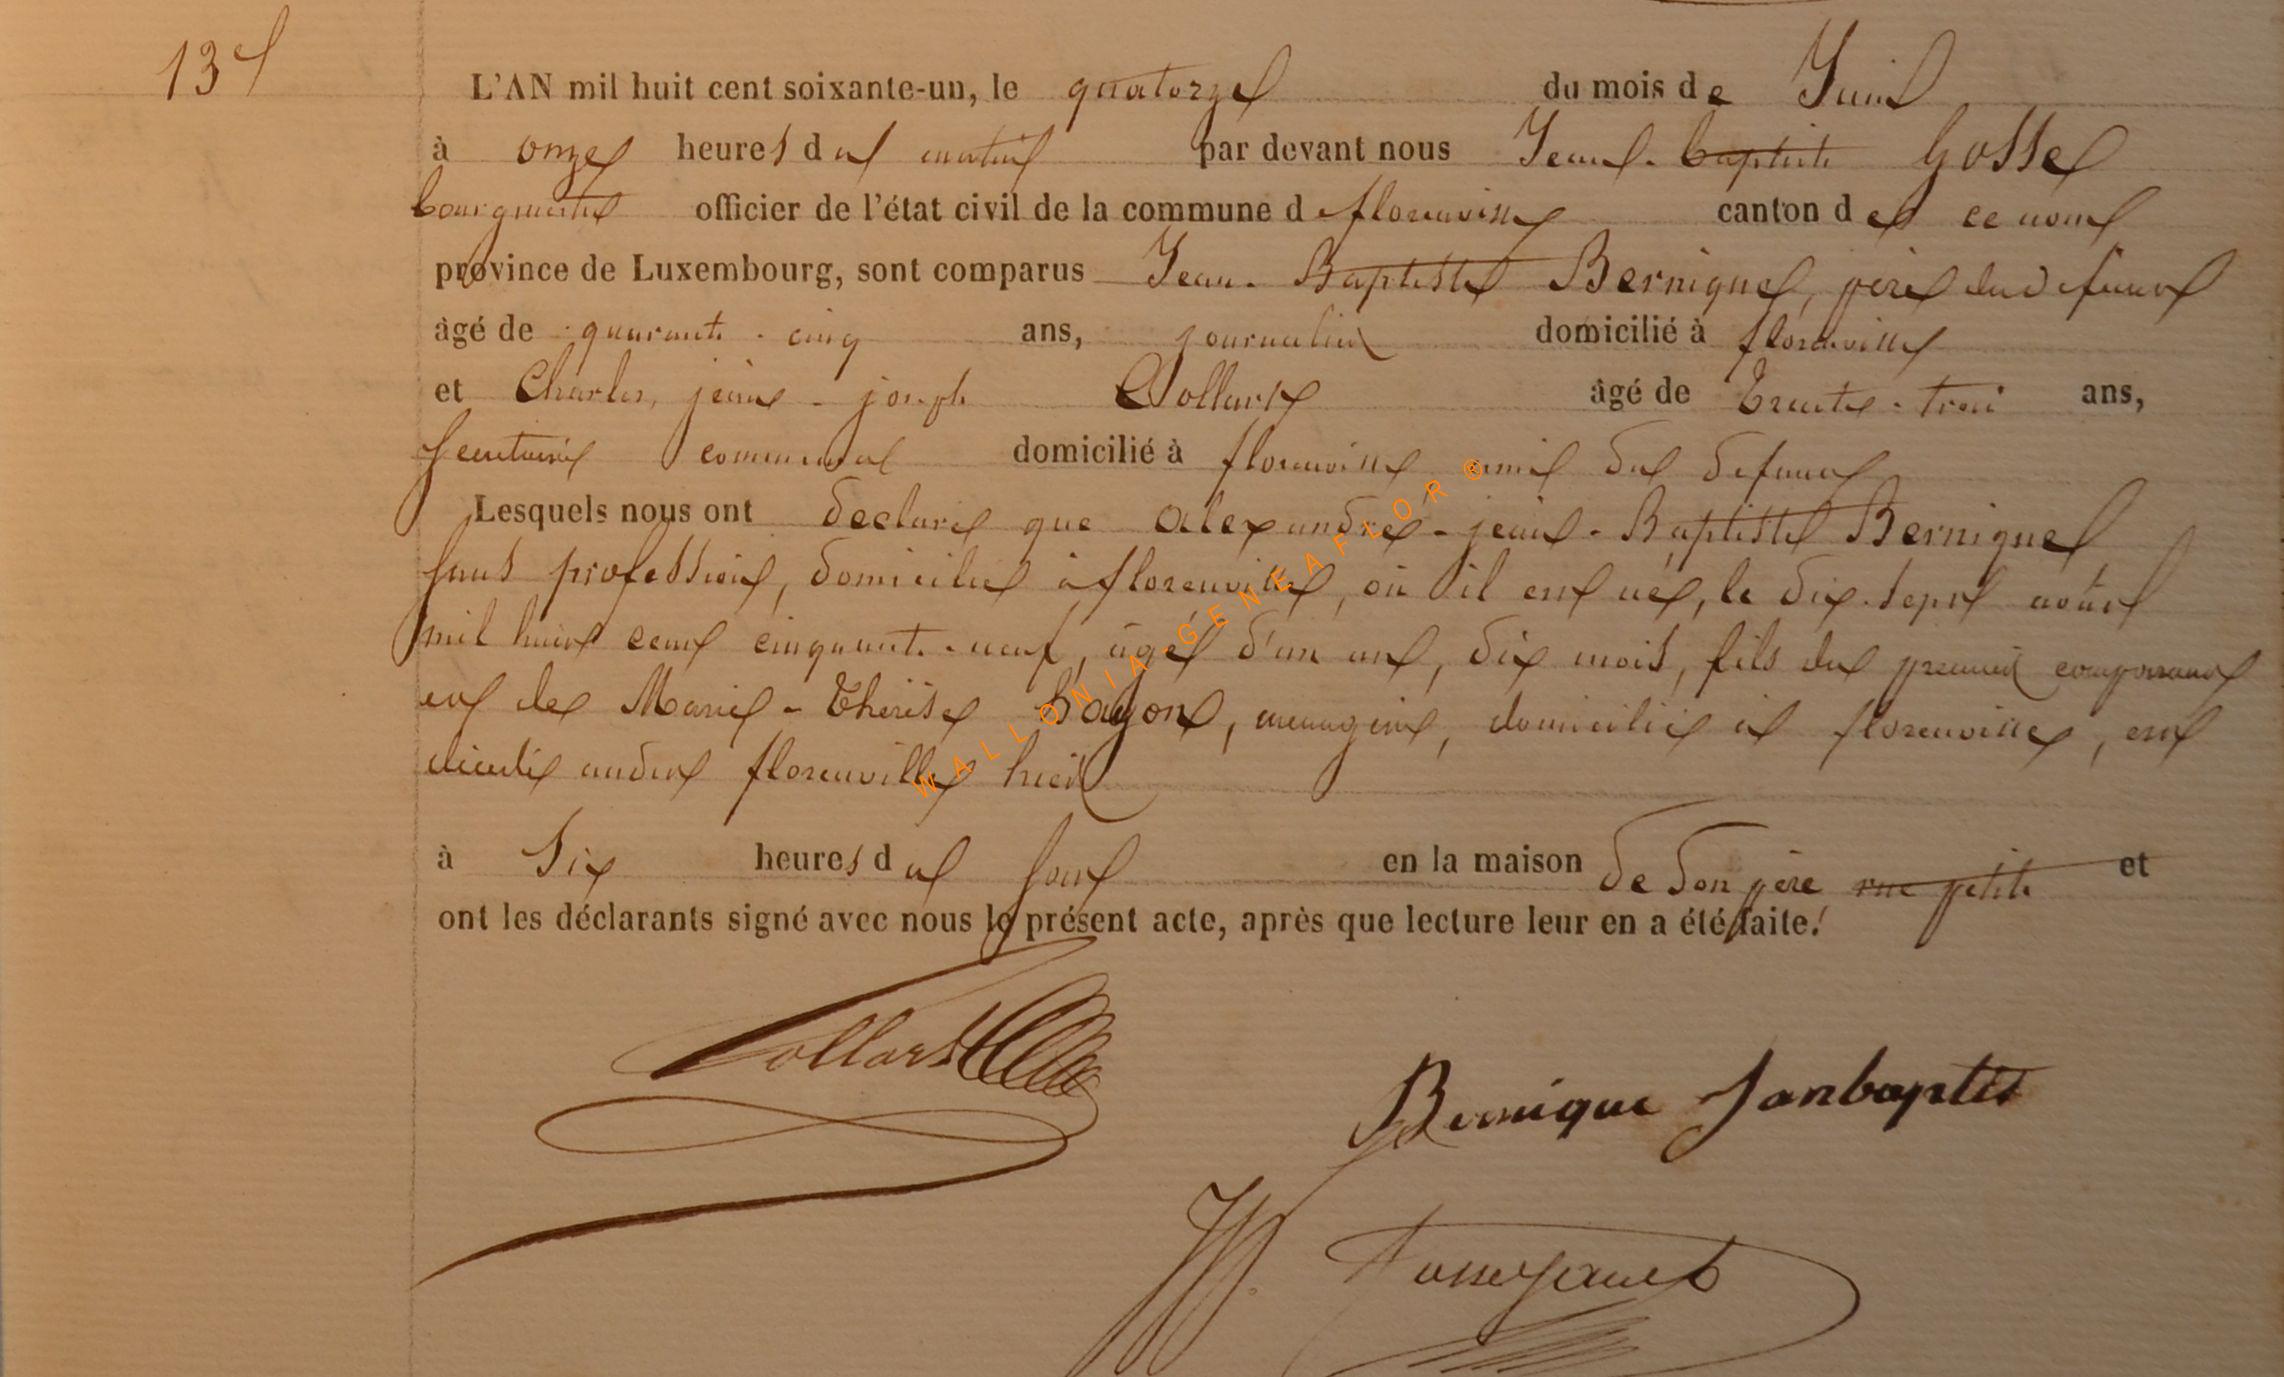 13e
L'AN mil huit cent soixante-un, le quatorze du mois de Juin
à onze heures du matin par devant nous Jean-baptiste Gosse
bourgmestre officier de l'état civil de la commune de florenville canton de ce nom
province de Luxembourg, sont comparus Jean-Baptiste Bernique, père du défunt
âgé de quarante-cinq ans, journalier domicilié à florenville
et Charles, jean-joseph Collart âgé de trente-trois ans,
secrétaire communal domicilié à florenville ami du défunt
Lesquels nous ont déclaré que alexandre-jean-Baptiste Bernique,
sans profession, domicilié à florenville, où il est né, le dix-sept août
mil huit cent cinquante-neuf, âgé d'un an, dix mois, fils du premier comparant
et de Marie-Thérèse hayon, ménagère, domiciliée à florenville, est
décédé audit florenville hier
à six heures du soir en la maison de son père rue petite et
ont les déclarants signé avec nous le présent acte, après que lecture leur en a été faite.
Collart
Bernique Janbaptis
WALLONIA-GENEAFLOR®